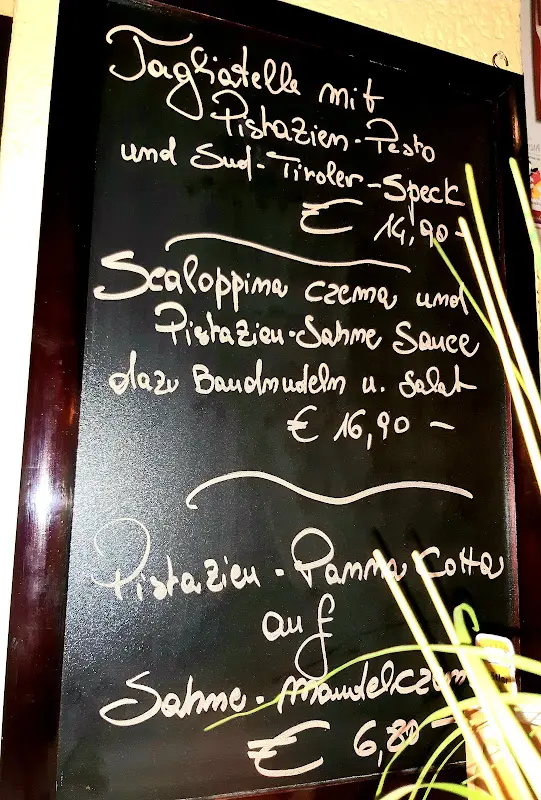 Tagliatelle mit
Pistazien-Pesto
und Süd-Tiroler-Speck
€ 14,90-
Scaloppina czema und
Pistazien-Sahne Sauce
dazu Bandnudeln u. Salat
€ 16,90 -
Pistazien-Panna Cotta
auf
Sahne-Mandelczem
€ 6,80 -